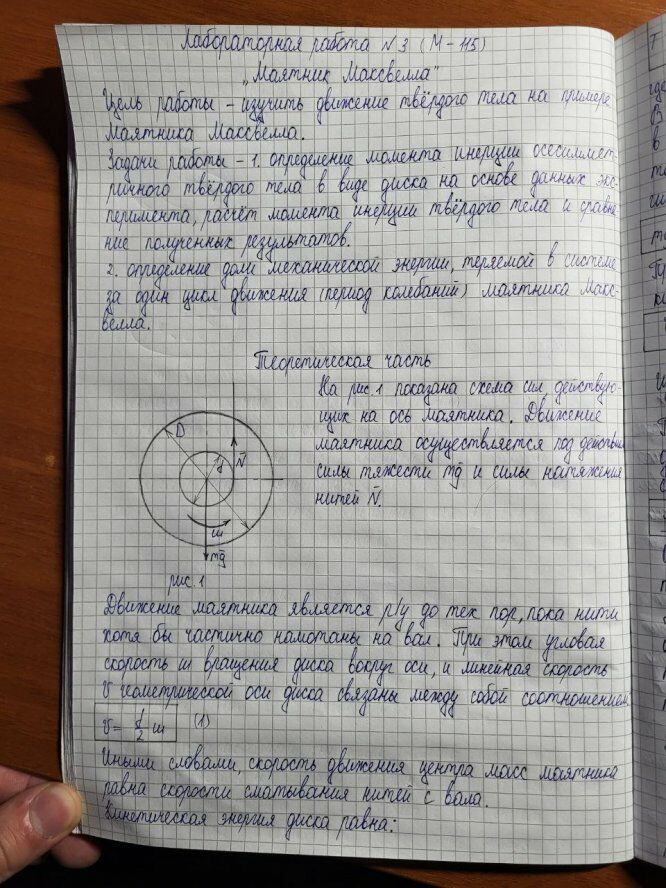 Лабораторная работа №3 (М-115)
„Маятник Максвелла"
Цель работы – изучить движение твёрдого тела на примере
маятника Максвелла.
Задачи работы – 1. определение момента инерции осесиммет-
ричного твёрдого тела в виде диска на основе данных экс-
перимента, расчёт момента инерции твёрдого тела и сравне-
ние полученных результатов.
2. определение доли механической энергии, теряемой в системе
за один цикл движения (период колебаний) маятника Макс-
велла.
Теоретическая часть
На рис.1 показана схема сил, действую-
щих на ось маятника. Движение
маятника осуществляется под действием
силы тяжести mg и силы натяжения
нитей N.
D
d
N
ω
mg
рис.1
Движение маятника является р/у до тех пор, пока нити
хотя бы частично намотаны на вал. При этом угловая
скорость ω вращения диска вокруг оси, и линейная скорость
v геометрической оси диска связаны между собой соотношением
v = d/2 ω (1)
Иными словами, скорость движения центра масс маятника
равна скорости сматывания нитей с вала.
Кинетическая энергия диска равна: